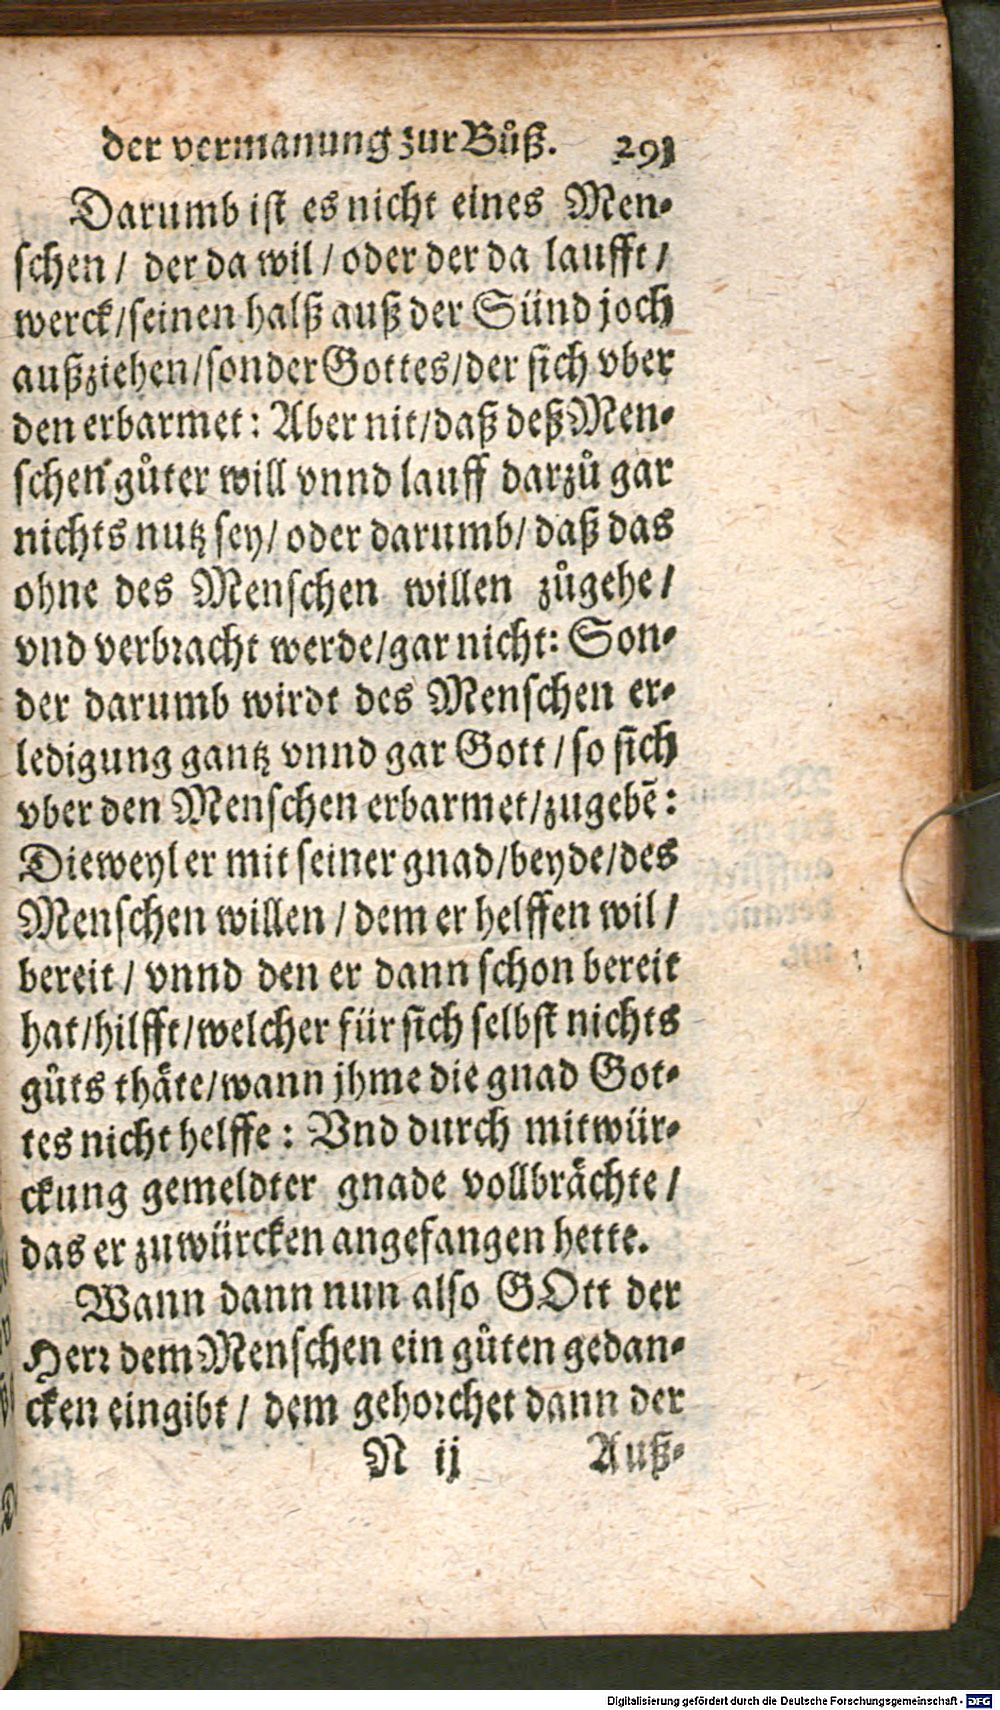 der vermanung zur Bůß. 291
Darumb ist es nicht eines Men⸗
schen / der da wil / oder der da laufft /
werck / seinen halß auß der Sünd joch
außziehen / sonder Gottes / der sich vber
den erbarmet: Aber nit / daß deß Men⸗
schen gůter will vnnd lauff darzů gar
nichts nutz sey / oder darumb / daß das
ohne des Menschen willen zůgehe /
vnd verbracht werde / gar nicht: Son⸗
der darumb wirdt des Menschen er⸗
ledigung gantz vnnd gar Gott / so sich
vber den Menschen erbarmet / zugebē:
Dieweyl er mit seiner gnad / beyde / des
Menschen willen / dem er helffen wil /
bereit / vnnd den er dann schon bereit
hat / hilfft / welcher für sich selbst nichts
gůts thäte / wann jhme die gnad Got⸗
tes nicht helffe: Vnd durch mitwür⸗
ckung gemeldter gnade vollbrächte /
das er zu würcken angefangen hette.
Wann dann nun also GOtt der
Herr dem Menschen ein gůten gedan⸗
cken eingibt / dem gehorchet dann der
N ij Auß⸗
Digitalisierung gefördert durch die Deutsche Forschungsgemeinschaft - DFG